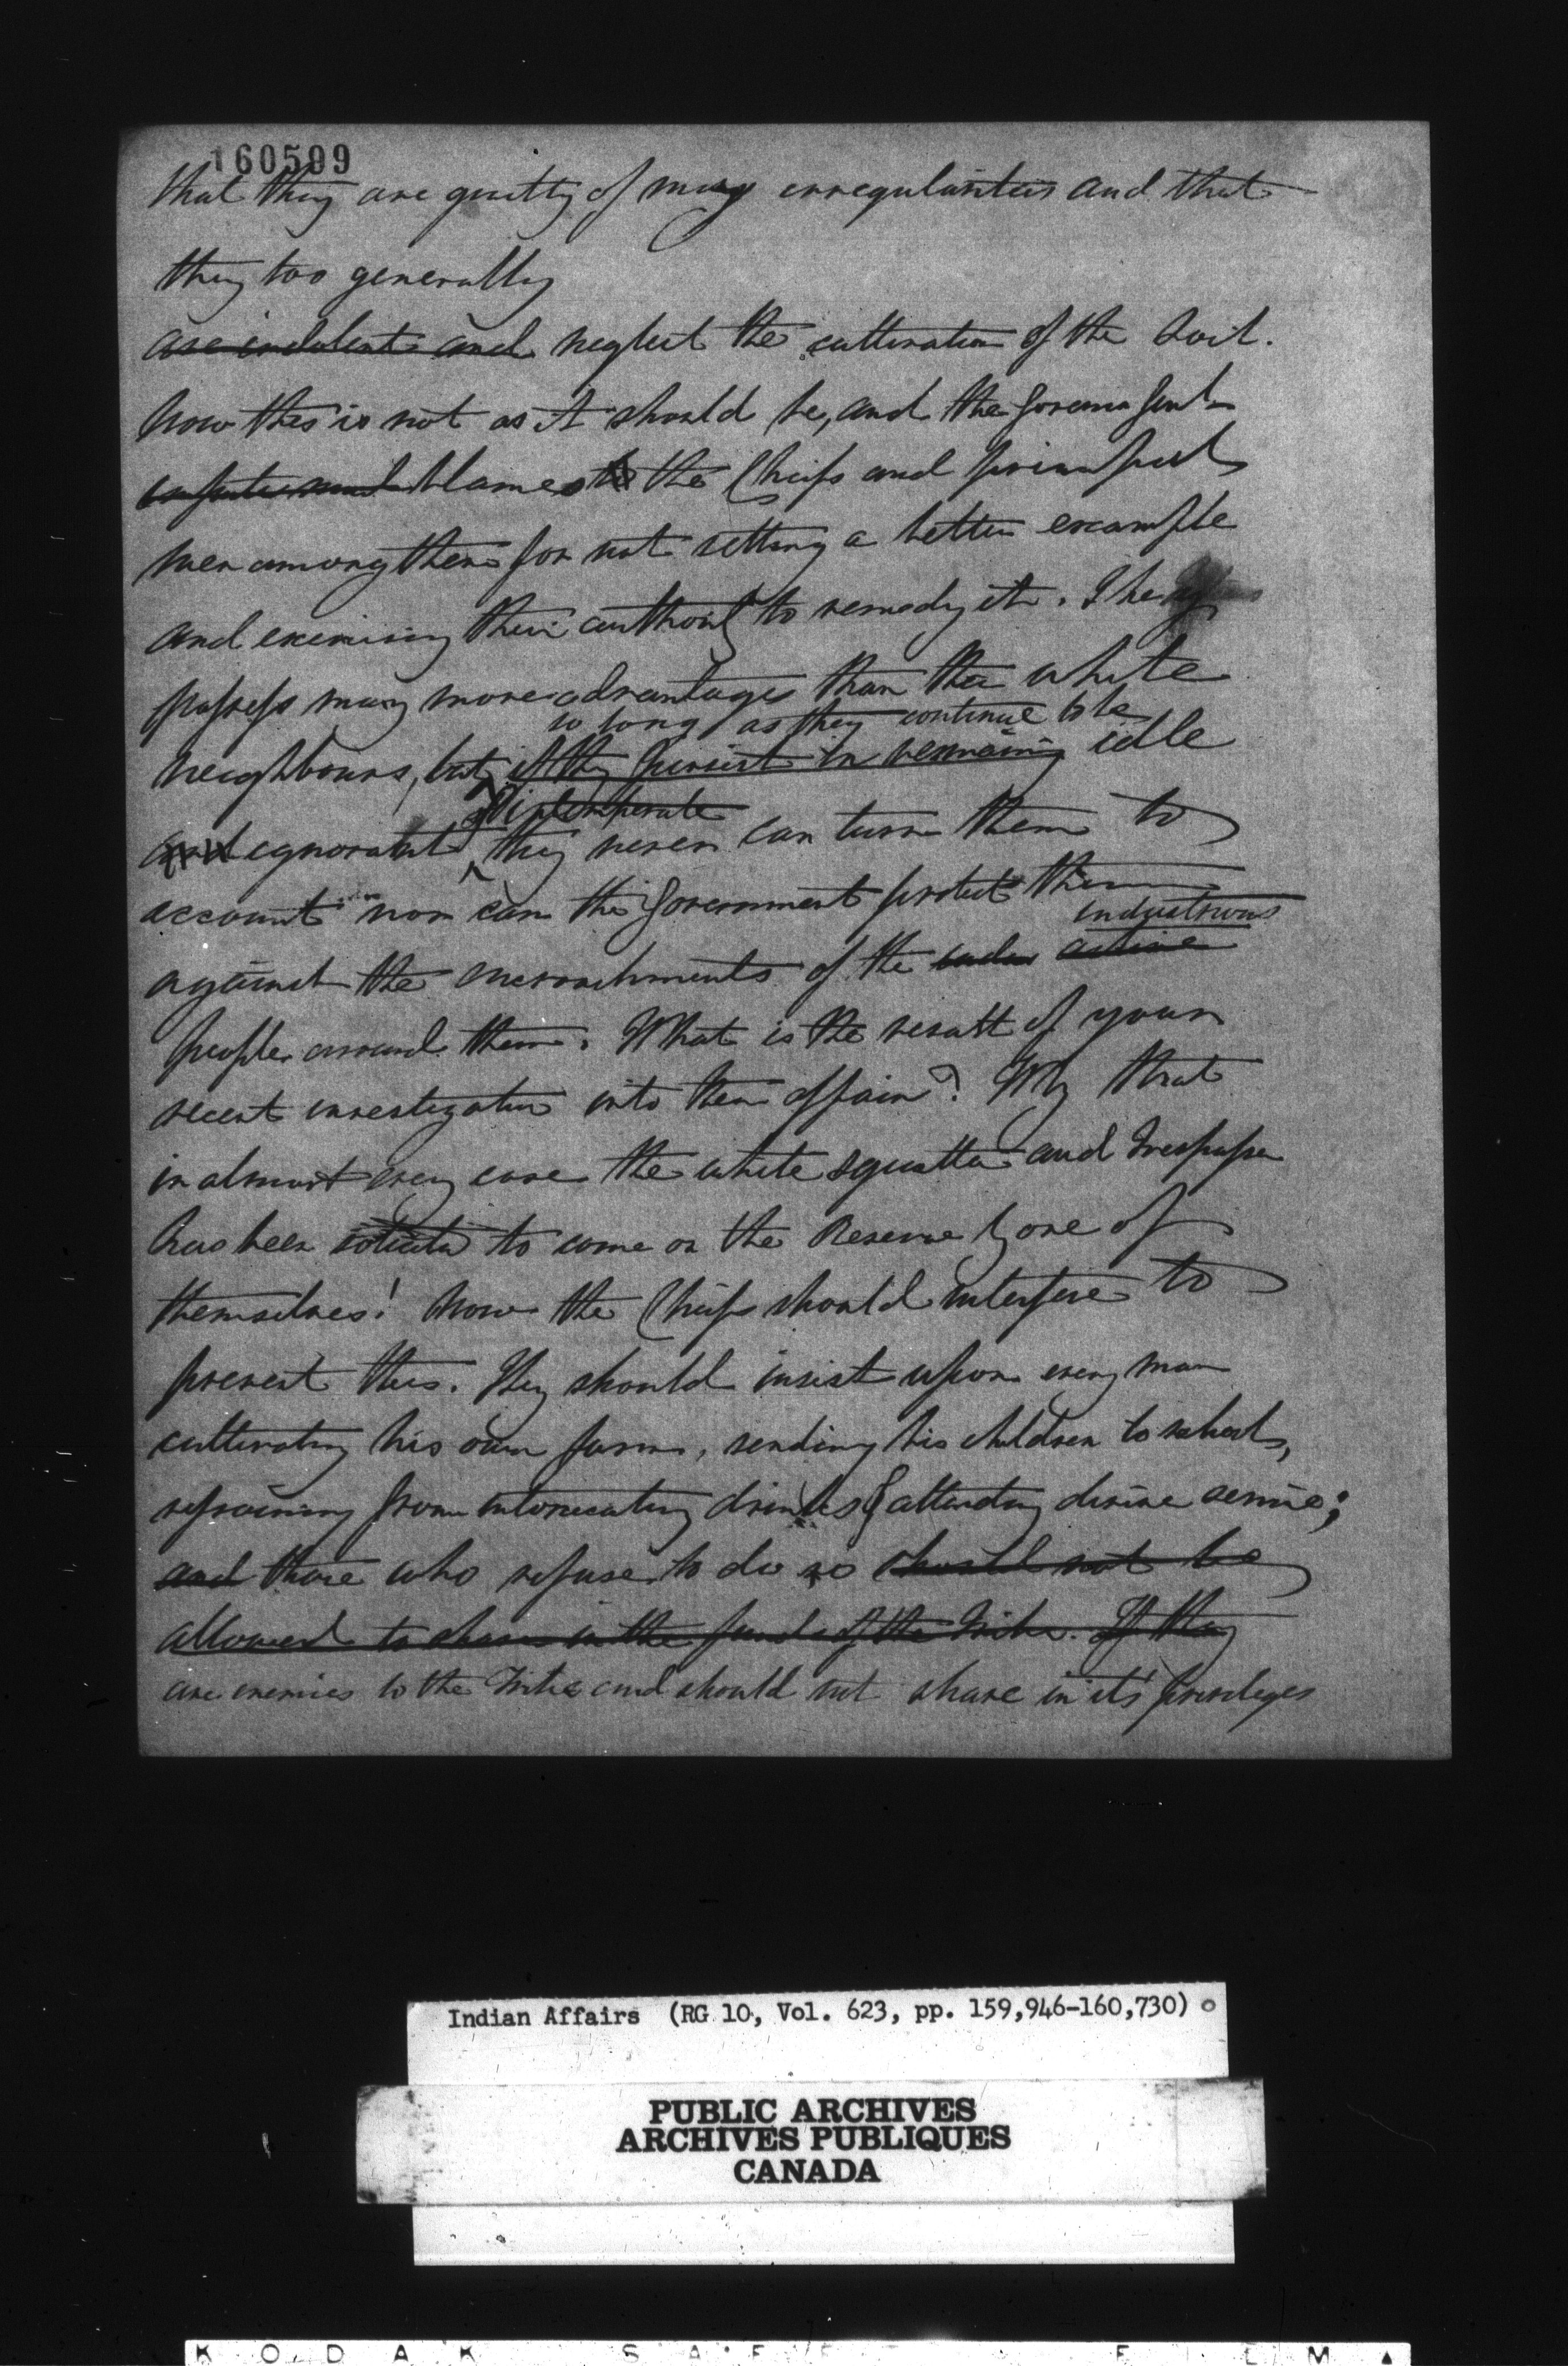 160599
that they are guilty of many irregularities and that
they too generally
are indolent and neglect the cultivation of the soil.
Now this is not as it should be, and the Government
blames the Chiefs and principal
men among them for not setting a better example
and exercising their authority to remedy it. They
possess many more advantages than their white
so long as they continue to be
neighbours, but if they persist in remaining idle
& intemperate
and ignorant they never can turn them to
account nor can the Government protect them
industrious
against the encroachments of the active
people around them. What is the result of your
recent investigation into their affairs? Why that
in almost every case the white squatter and trespasser
has been to come on the Reserve by one of
themselves! Now the Chiefs should interfere to
prevent this. They should insist upon every man
cultivating his own farm, sending his children to school,
refraining from intoxicating drinks & attending divine service;
and those who refuse to do so should not be
allowed to share in the funds of the Tribe. If they
are enemies to the Tribe and should not share in its' privileges
Indian Affairs (RG 10, Vol. 623, pp. 159,946-160,730)
PUBLIC ARCHIVES
ARCHIVES PUBLIQUES
CANADA
KODAK SAFE FILM